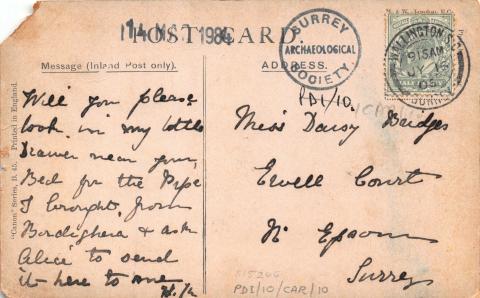 M & W. London, E.C.
14 MAY 1984
POST CARD.
SURREY
ARCHAEOLOGICAL
SOCIETY.
Message (Inland Post only).
ADDRESS.
WALLINGTON
915AM
05
PDI/10.
Will you please
look in my little
Drawer near your
Bed for the Pipe
I brought from
Bordighera & ask
Alice to send
it here to me
Miss Daisy Bridges
Ewell Court
Nr Epsom
Surrey
PDI/10/CAR/10
"Canon" Series, B. 45. Printed in England.